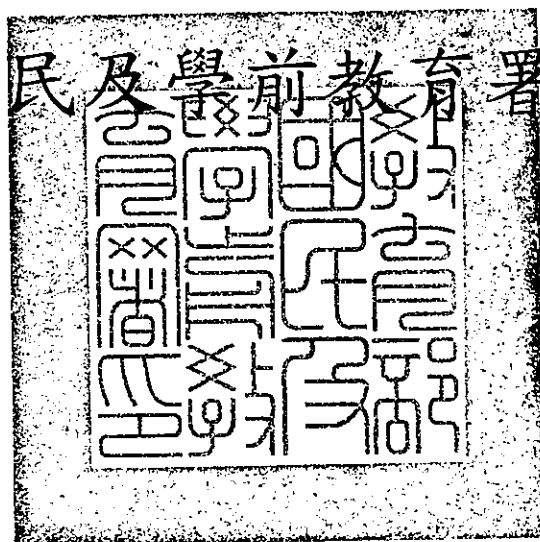 民及學前教育署
教育部
國民及
學前教
育署印